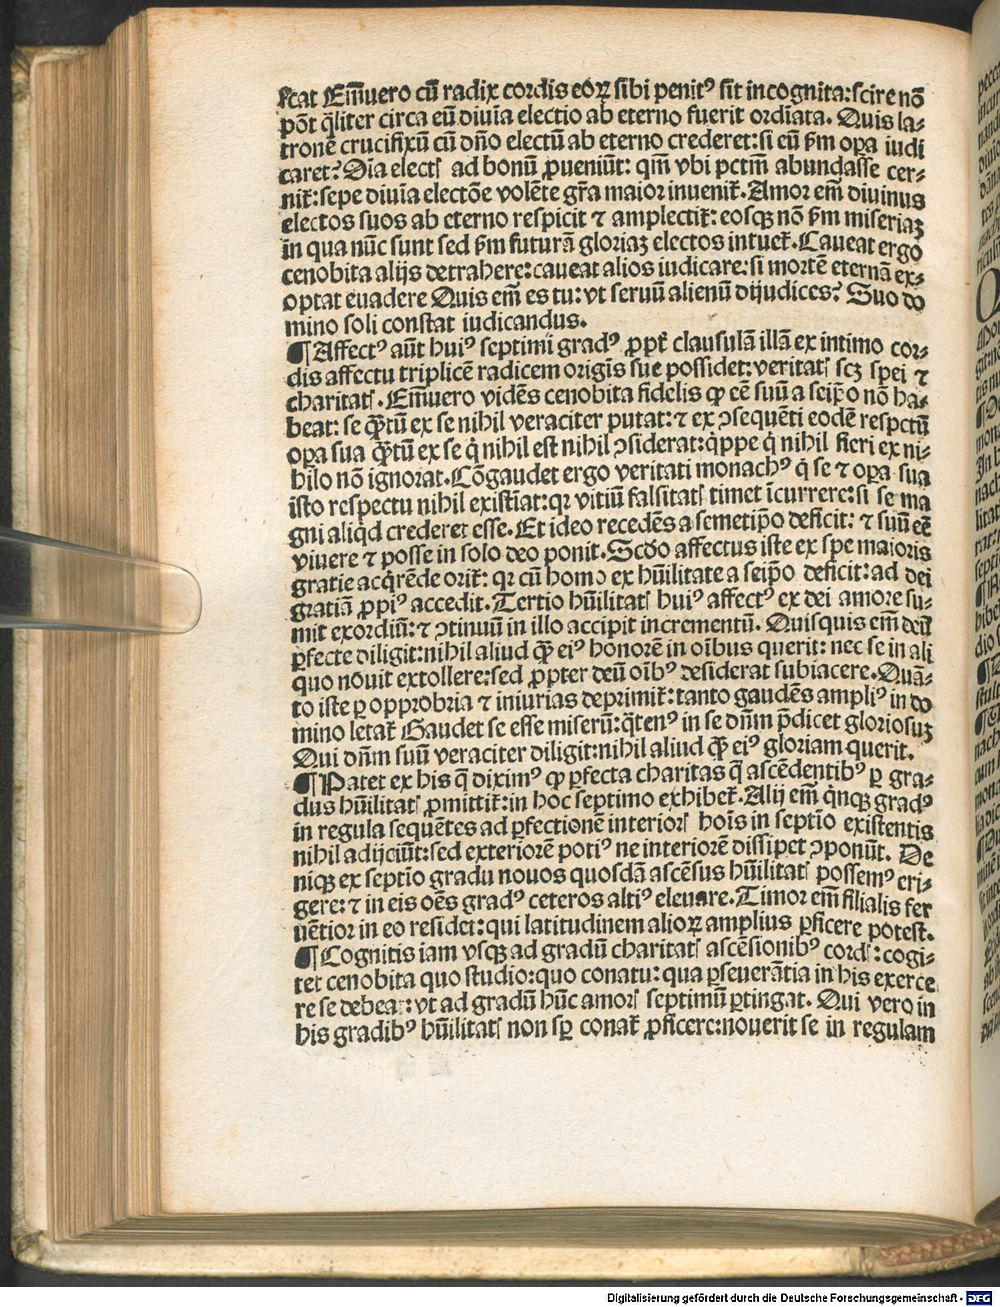 ſcat Em̄uero cū radix cordis eoꝝ ſibi penitꝰ ſit incognita: ſcire nō
pōt q̄liter circa eū diuīa electio ab eterno fuerit ordīata. Quis la⸗
tronē crucifixū cū dn̄o electū ab eterno crederet: ſi eū ẜm oꝑa iudi
caret? Oīa electꝭ ad bonū ꝓueniūt: qm̄ vbi pctm̄ abundaſſe cer⸗
nit᷑: ſepe diuīa electōe volēte gr̄a maior inuenit᷑. Amor em̄ diuinus
electos ſuos ab eterno reſpicit ⁊ amplectit᷑: eoſqꝫ nō ẜm miſeriaꝫ
in qua nūc ſunt ſed ẜm futurā gloriaꝫ electos intuet᷑. Caueat ergo
cenobita alijs detrahere: caueat alios iudicare: ſi mortē eternā ex⸗
optat euadere Quis em̄ es tu: vt ſeruū alienū dijudices? Suo do
mino ſoli conſtat iudicandus.
¶ Affectꝰ aūt huiꝰ ſeptimi gradꝰ ꝓpt᷑ clauſulā illā ex intimo cor⸗
dis affectu triplicē radicem origīs ſue poſſidet: veritatꝭ ſcꝫ ſpei ⁊
charitatꝭ. Em̄uero vidēs cenobita fidelis ꝙ eē ſuū a ſeip̄o nō ha⸗
beat: ſe q̄ꝫtū ex ſe nihil veraciter putat: ⁊ ex ↄſequēti eodē reſpctū
oꝑa ſua q̄ꝫtū ex ſe q̇ nihil eſt nihil ↄſiderat: q̇ppe q̇ nihil fieri ex ni⸗
hilo nō ignorat. Cōgaudet ergo veritati monachꝰ q̇ ſe ⁊ oꝑa ſua
iſto reſpectu nihil exiſtīat: qꝛ vitiū falſitatꝭ timet īcurrere: ſi ſe ma
gni aliq̇d crederet eſſe. Et ideo recedēs a ſemetip̄o deficit: ⁊ ſuū eē
viuere ⁊ poſſe in ſolo deo ponit. Scd̄o affectus iſte ex ſpe maioris
gratie acq̇rēde orit᷑: qꝛ cū homo ex hūilitate a ſeip̄o deficit: ad dei
gratiā ꝓpiꝰ accedit. Tertio hūilitatꝭ huiꝰ affectꝰ ex dei amore ſu⸗
mit exordiū: ⁊ ↄtinuū in illo accipit incrementū. Quiſquis em̄ deū
ꝑfecte diligit: nihil aliud q̄ꝫ eiꝰ honorē in oībus querit: nec ſe in ali
quo nouit extollere: ſed ꝓpter deū oībꝰ deſiderat ſubiacere. Quā⸗
to iſte ꝑ opprobria ⁊ iniurias deprimit᷑: tanto gaudēs ampliꝰ in do
mino letat᷑ Gaudet ſe eſſe miſerū: q̄tenꝰ in ſe dn̄m p̄dicet glorioſuꝫ
Qui dn̄m ſuū veraciter diligit: nihil aliud q̄ꝫ eiꝰ gloriam querit.
¶ Patet ex his q̄ diximꝰ ꝙ ꝑfecta charitas q̄ aſcēdentibꝰ ꝑ gra⸗
dus hūilitatꝭ ꝓmittit᷑: in hoc ſeptimo exhibet᷑. Alij em̄ q̇nqꝫ gradꝰ
in regula ſequētes ad ꝑfectionē interiorꝭ hoīs in ſeptīo exiſtentis
nihil adijciūt: ſed exteriorē potiꝰ ne interiorē diſſipet ↄponūt. De
niqꝫ ex ſeptīo gradu nouos quoſdā aſcēſus hūilitatꝭ poſſemꝰ eri⸗
gere: ⁊ in eis oēs gradꝰ ceteros altiꝰ eleuare. Timor em̄ filialis fer
uētior in eo reſidet: qui latitudinem alioꝝ amplius ꝑficere poteſt.
¶ Cognitis iam vſqꝫ ad gradū charitatꝭ aſcēſionibꝰ cordꝭ: cogi⸗
tet cenobita quo ſtudio: quo conatu: qua ꝑſeuerātia in his exerce
re ſe debeat: vt ad gradū hūc amorꝭ ſeptimū ꝑtingat. Qui vero in
his gradibꝰ hūilitatꝭ non ſꝑ conat᷑ ꝓficere: nouerit ſe in regulam
Digitalisierung gefördert durch die Deutsche Forschungsgemeinschaft - DFG